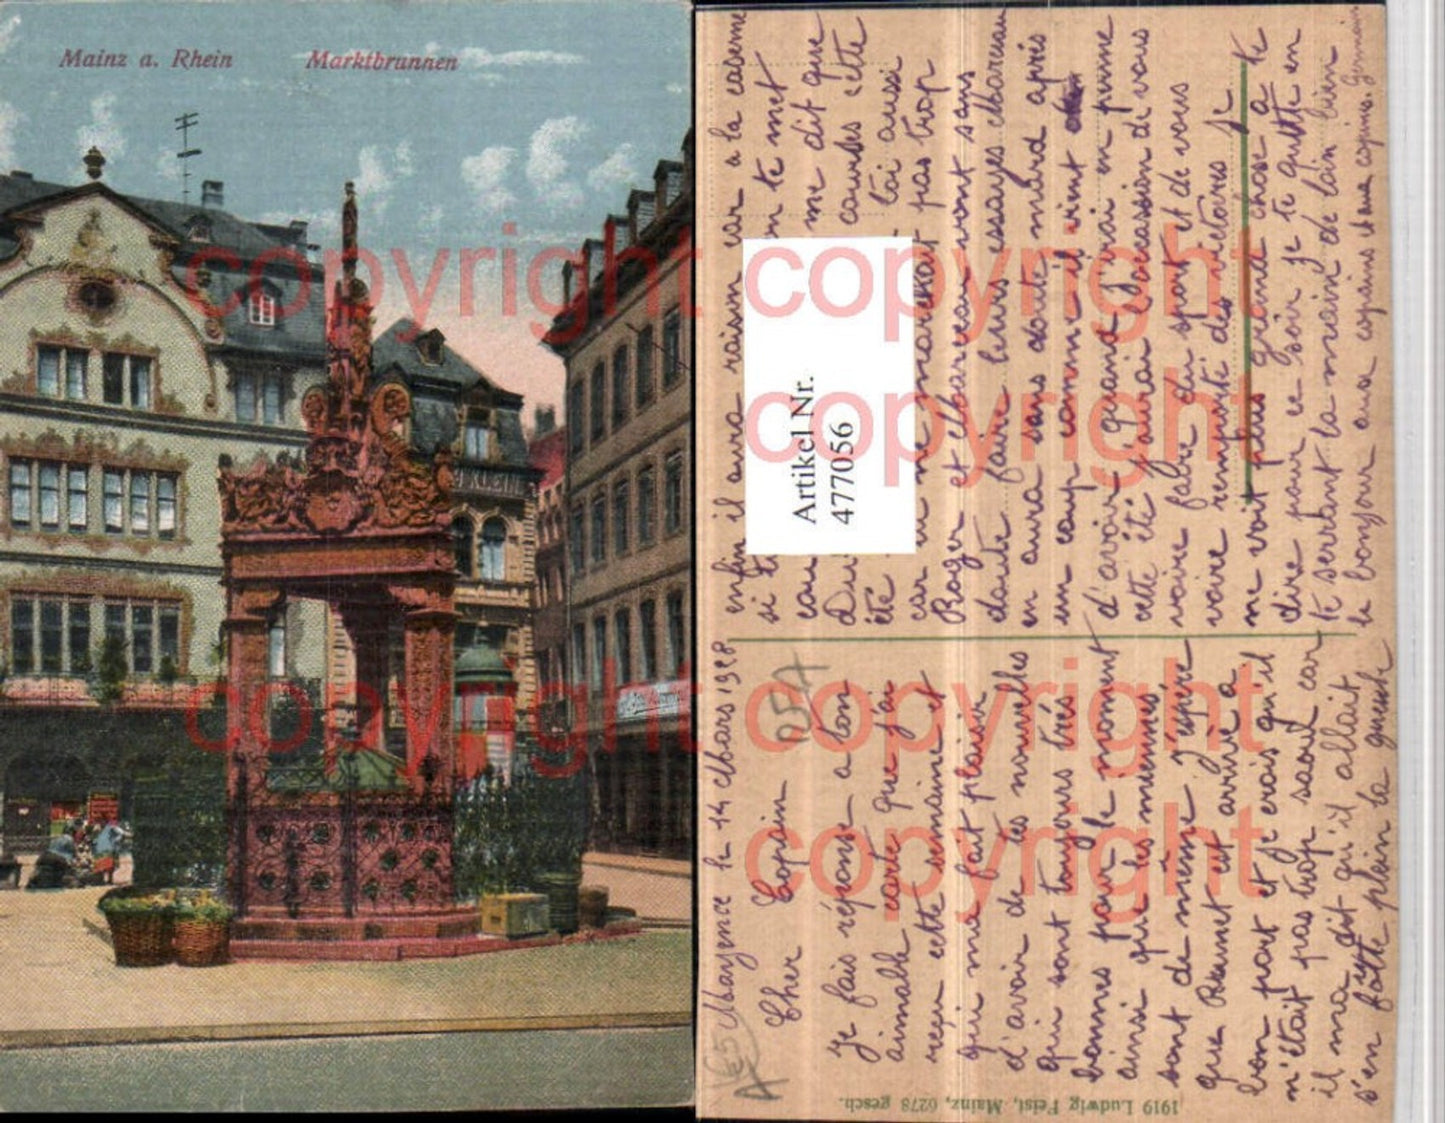 Mainz a. Rhein Marktbrunnen
KLEIN
copyright copyright
copyright
copyright copyright
copyright
Artikel Nr.
477056
Mayence le 14 Mars 1928
Cher Copain
je fais réponse a ton
aimable carte que j'ai
reçu cette semaine et
qui m'a fait plaisir
d'avoir de tes nouvelles
qui sont toujours très
bonnes pour le moment
ainsi que les miennes
sont de même j'espère
que est arrivé a
bon port et je crois qu'il
n'était pas trop saoul car
il m'a dit qu'il allait
s'en foutre plein la gueule
enfin il aura raison car a la caserne
si t on te met
me dit que
cette
été toi aussi
car pas trop
Roger et Marceau vont sans
doute faire leurs essayes Marceau
en aura sans doute mard après
un coup comme il vient
d'avoir quand j'irai en perme
cette été j'aurai l'ocassion de vous
voire faire du sport et de vous
voire remporté des victoires je
ne voit plus grand chose a te
dire pour ce soir je te quitte en
te serrant la main de loin bien
le bonjour aux copains et aux copines. Germain
1919 Ludwig Feist, Mainz, 6278 gesch.